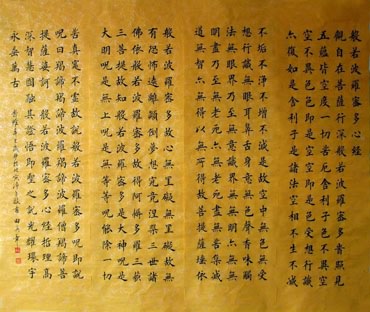 般若波羅密多心經
觀自在菩薩行深般若波羅密多時照見
五蘊皆空度一切苦厄舍利子色不異空
空不異色色即是空空即是色受想行識
亦復如是舍利子是諸法空相不生不滅
不垢不淨不增不減是故空中無色無受
想行識無眼耳鼻舌身意無色聲香味觸
法無眼界乃至無意識界無無明亦無無
明盡乃至無老死亦無老死盡無苦集滅
道無智亦無得以無所得故菩提薩埵依
般若波羅密多故心無罣礙無罣礙故無
有恐怖遠離顛倒夢想究竟涅槃三世諸
佛依般若波羅密多故得阿耨多羅三藐
三菩提故知般若波羅密多是大神呪是
大明呪是無上呪是無等等呪能除一切
苦真實不虛故說般若波羅密多呪即說
呪曰揭諦揭諦波羅揭諦波羅僧揭諦菩
提薩婆訶 般若波羅密多心經哲理高
深智慧圓融其證悟即聖之說光耀環宇
永垂萬古